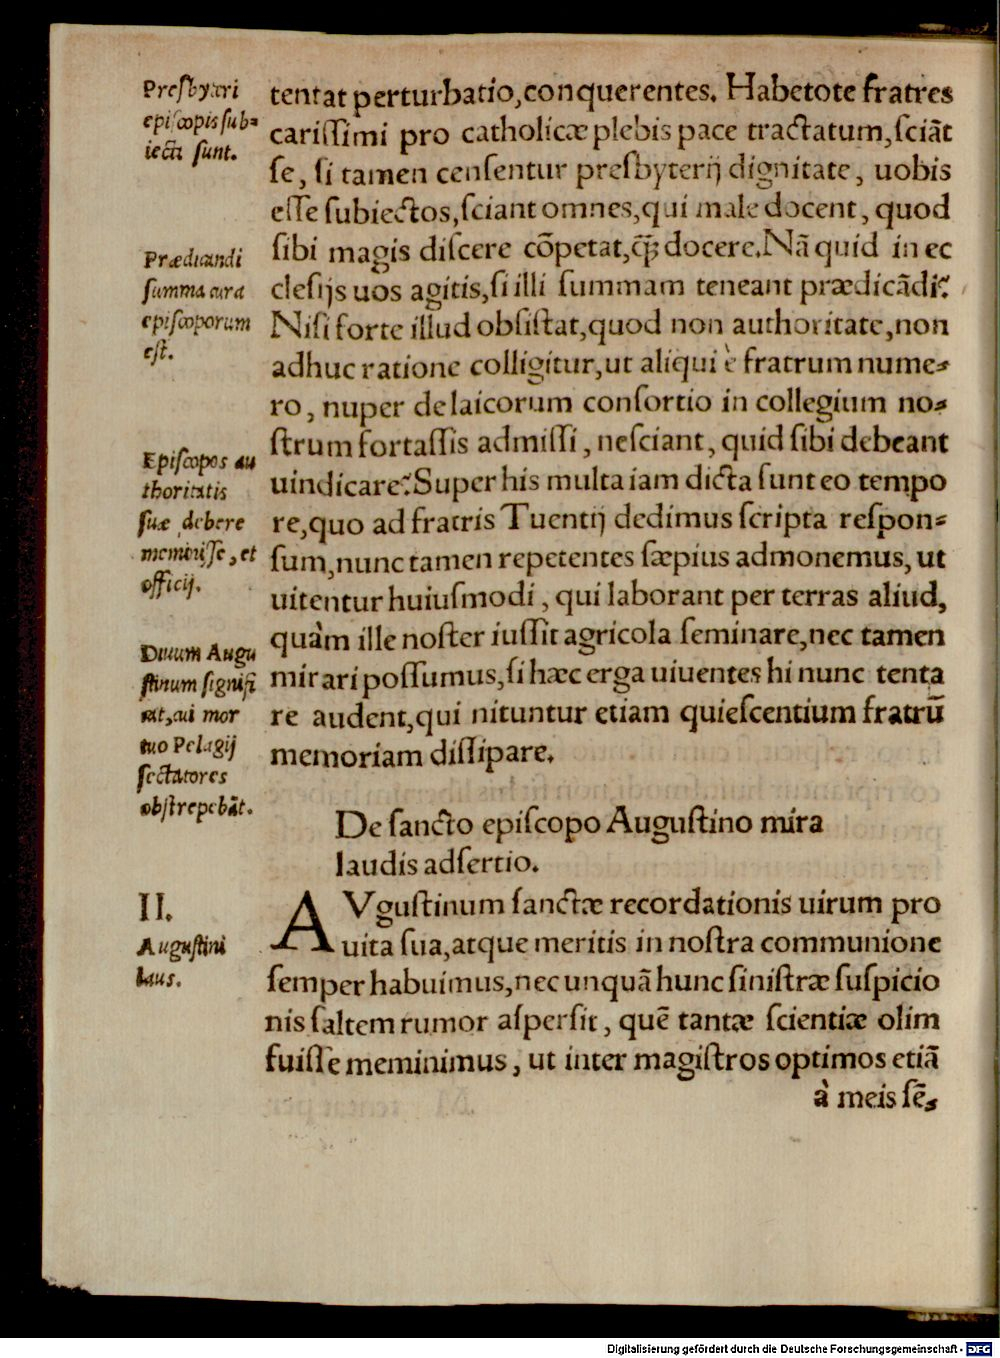 Presbyteri
episcopis sub-
iecti sunt.
Prædicandi
summa cura
episcoporum
est.
Episcopos au
thoritatis
suæ debere
meminisse, et
officij.
Diuum Augu
stinum signifi
cat, cui mor
tuo Pelagij
sectatores
obstrepebāt.
tentat perturbatio, conquerentes. Habetote fratres
carissimi pro catholicæ plebis pace tractatum, sciāt
se, si tamen censentur presbyterij dignitate, uobis
esse subiectos, sciant omnes, qui male docent, quod
sibi magis discere cōpetat, q̃ꝫ docere. Nā quid in ec
clesijs uos agitis, si illi summam teneant prædicādi?
Nisi forte illud obsistat, quod non authoritate, non
adhuc ratione colligitur, ut aliqui è fratrum nume-
ro, nuper de laicorum consortio in collegium no-
strum fortassis admissi, nesciant, quid sibi debeant
uindicare? Super his multa iam dicta sunt eo tempo
re, quo ad fratris Tuentij dedimus scripta respon-
sum, nunc tamen repetentes sæpius admonemus, ut
uitentur huiusmodi, qui laborant per terras aliud,
quàm ille noster iussit agricola seminare, nec tamen
mirari possumus, si hæc erga uiuentes hi nunc tenta
re audent, qui nituntur etiam quiescentium fratrū
memoriam dissipare.
De sancto episcopo Augustino mira
laudis adsertio.
II.
Augustini
laus.
AVgustinum sanctæ recordationis uirum pro
uita sua, atque meritis in nostra communione
semper habuimus, nec unquā hunc sinistræ suspicio
nis saltem rumor aspersit, quē tantæ scientiæ olim
fuisse meminimus, ut inter magistros optimos etiā
à meis sē-
Digitalisierung gefördert durch die Deutsche Forschungsgemeinschaft - DFG